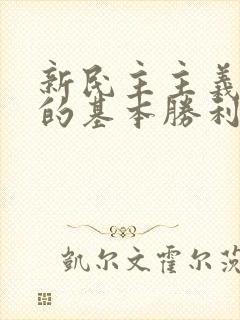 新民主主義
的基本勝利
凱尔文霍尔茨